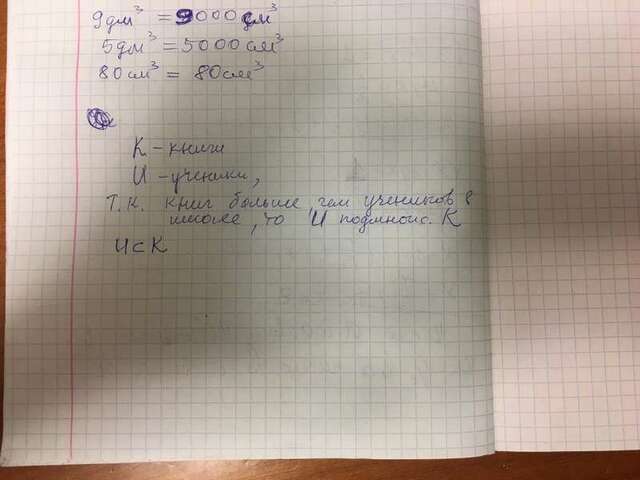 9дм³ = 9000см³
5дм³ = 5000см³
80см³ = 80см³
К - книги
И - ученики,
Т.к. книг больше чем учеников в
школе, то И поднмож. К
И с К